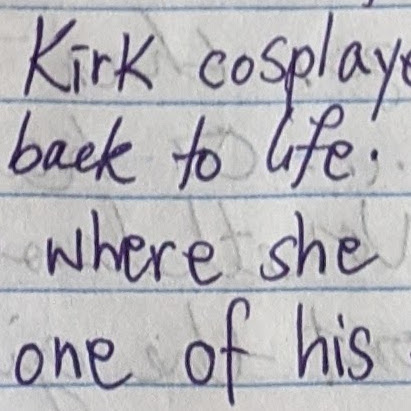 Kirk cosplaye
back to life.
where she
one of his